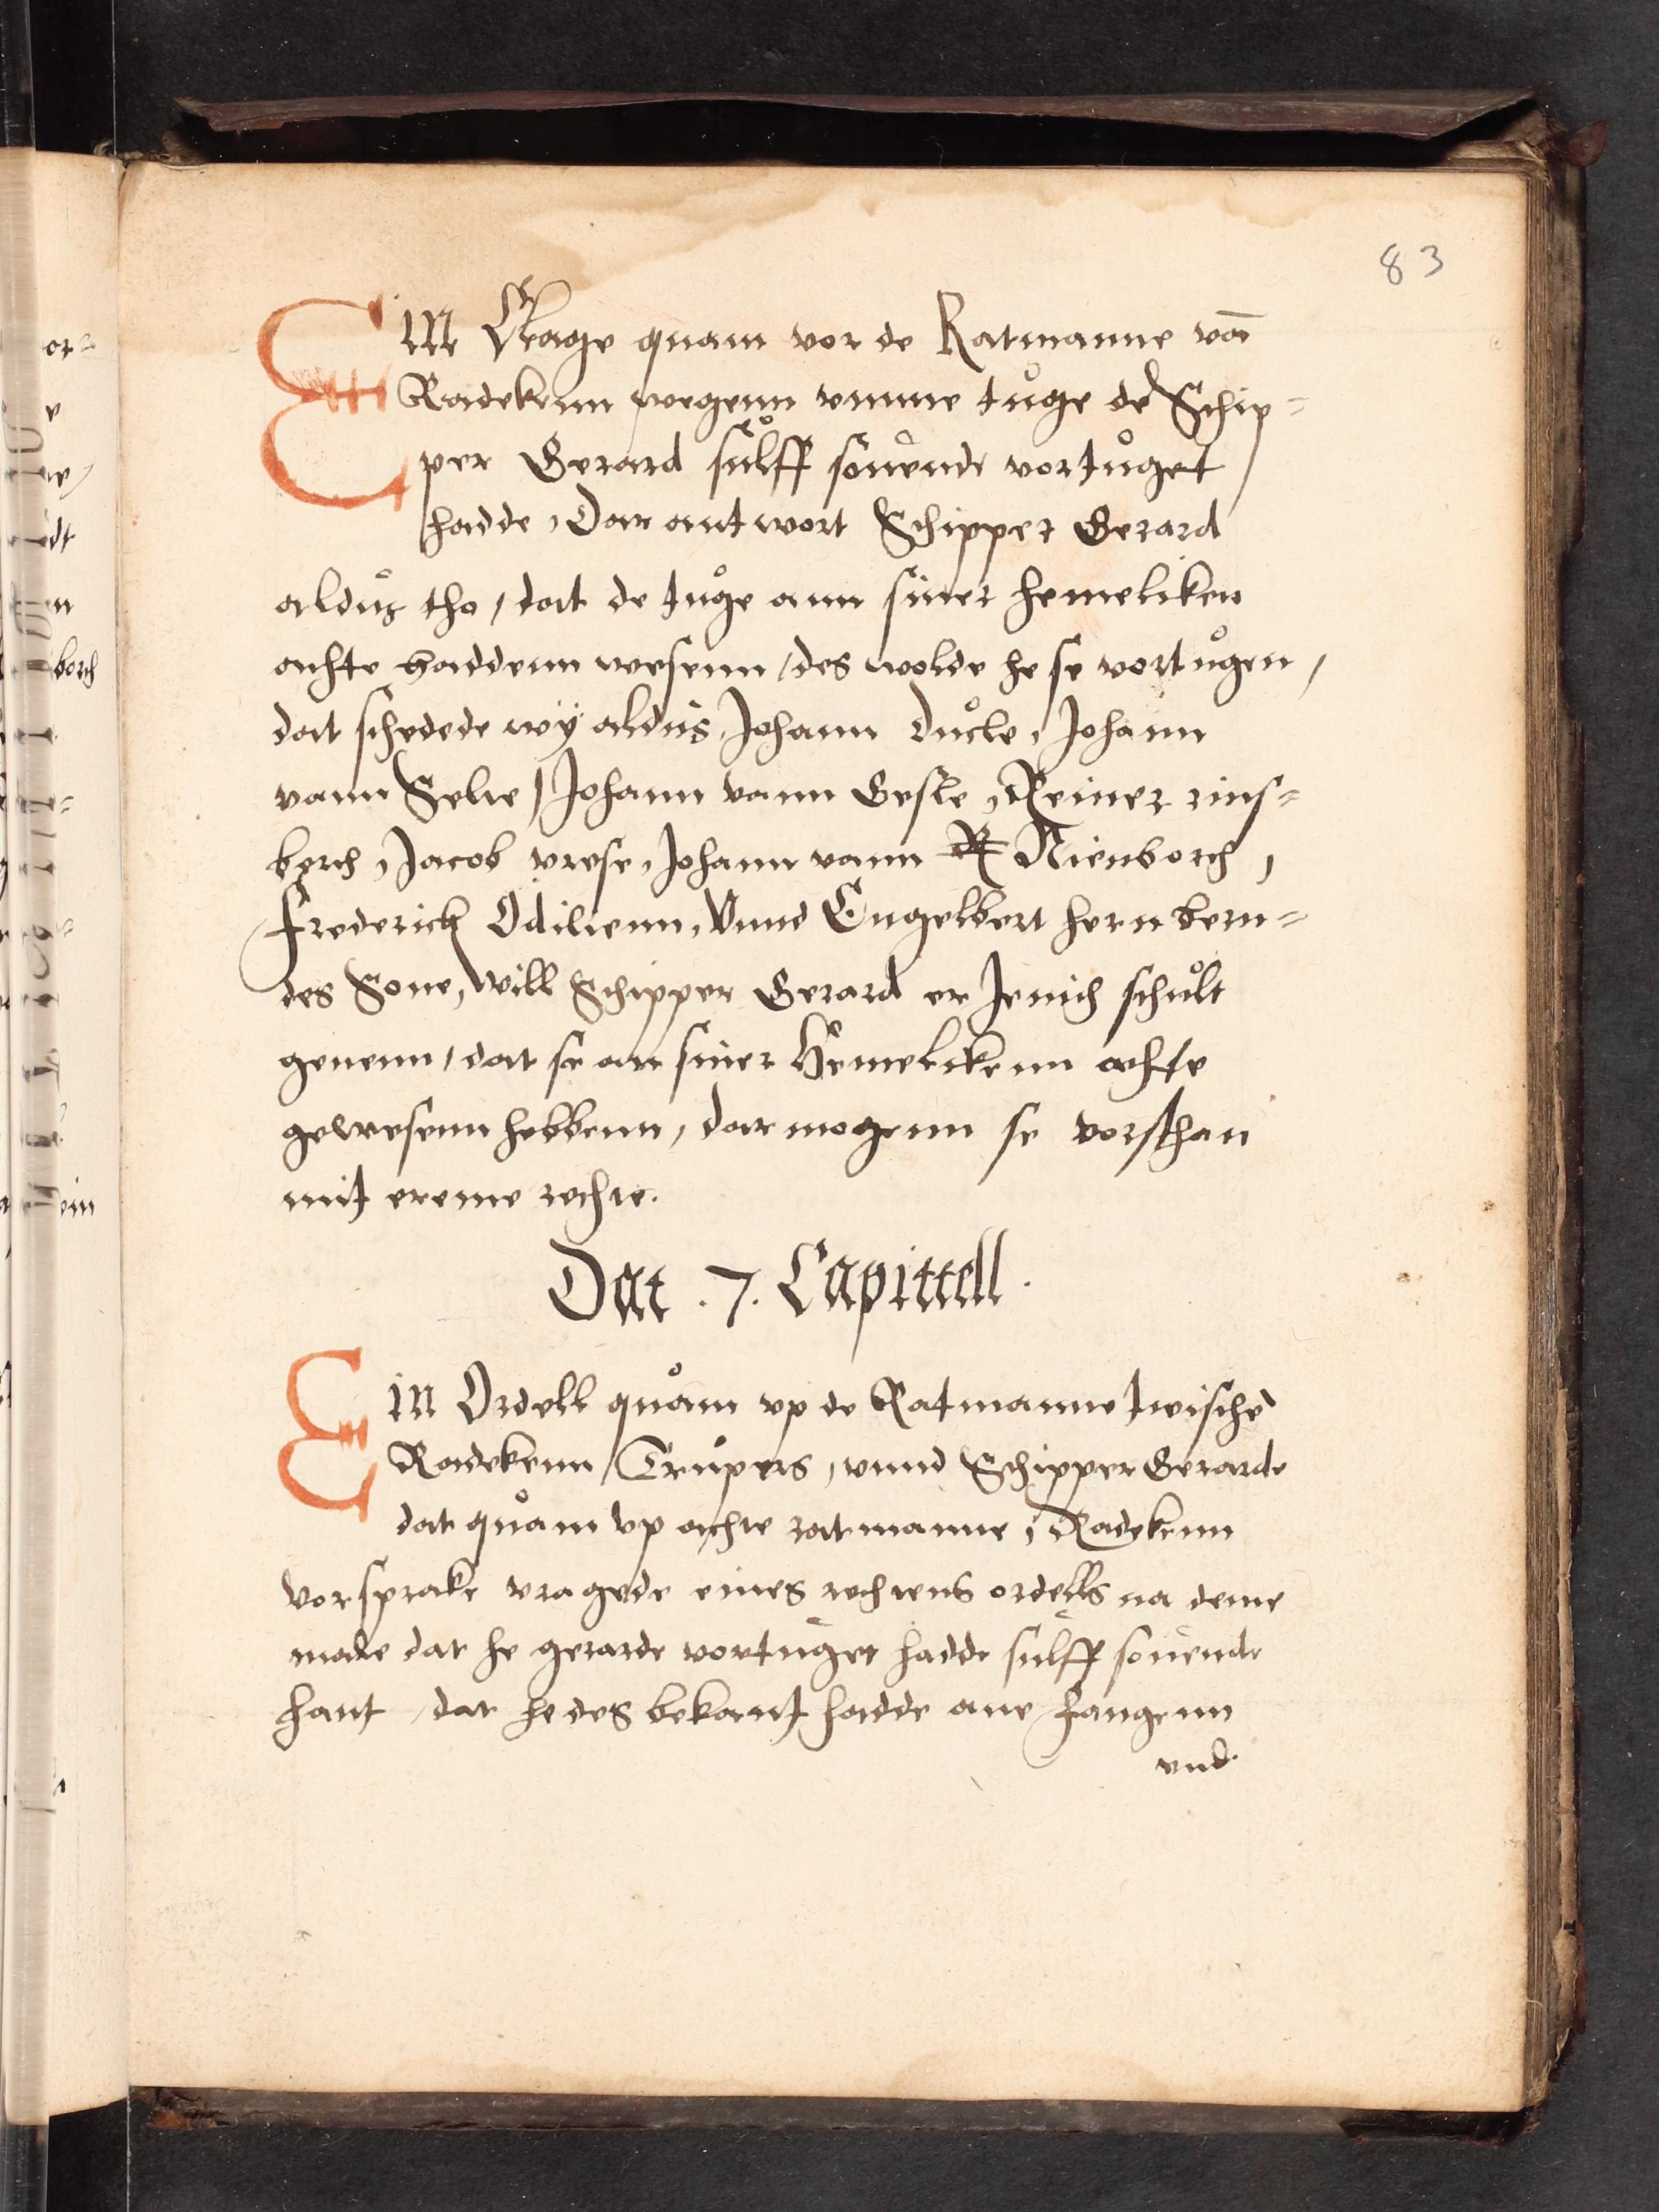 83
Ein Klage quam vor de Ratmanne vā
Radekenn wegenn vmme tůge de Schip=
per Gerard sůlff souende vortůget
hadde, Dar antwort Schipper Gerard
aldus tho / dat de tůge ann siner hemeliken
achte haddenn wesenn / des wolde he se vortůgen,
dat schedede wÿ aldus, Johann Ducle, Johann
vann Selve / Johann vann Gesle, Reiner rins=
berch, Jacob vrese, Johann vann Nienborch,
Frederick Odilienn, Vnnd Engelbert hern bern=
des Sone, Will Schipper Gerard er Jenich schůlt
geuenn / dat se an siner Hemelikenn achte
gewesenn hebbenn, dar mogenn se vorsthan
mit ereme rechte.
Dat .7. Capittell.
Ein Ordell quam vp de Ratmanne twische
Radekenn Trupers, vnnd Schipper Gerarde
dat quam vp achte ratmanne, Radekenn
vorsprake vragede eines rechtens ordells na deme
male dat he gerarde vortuget hadde sulff souende
hant, dat he des bekant hadde ane hangenn
vnd
or=
v
ve/
dt
n
borch
ein